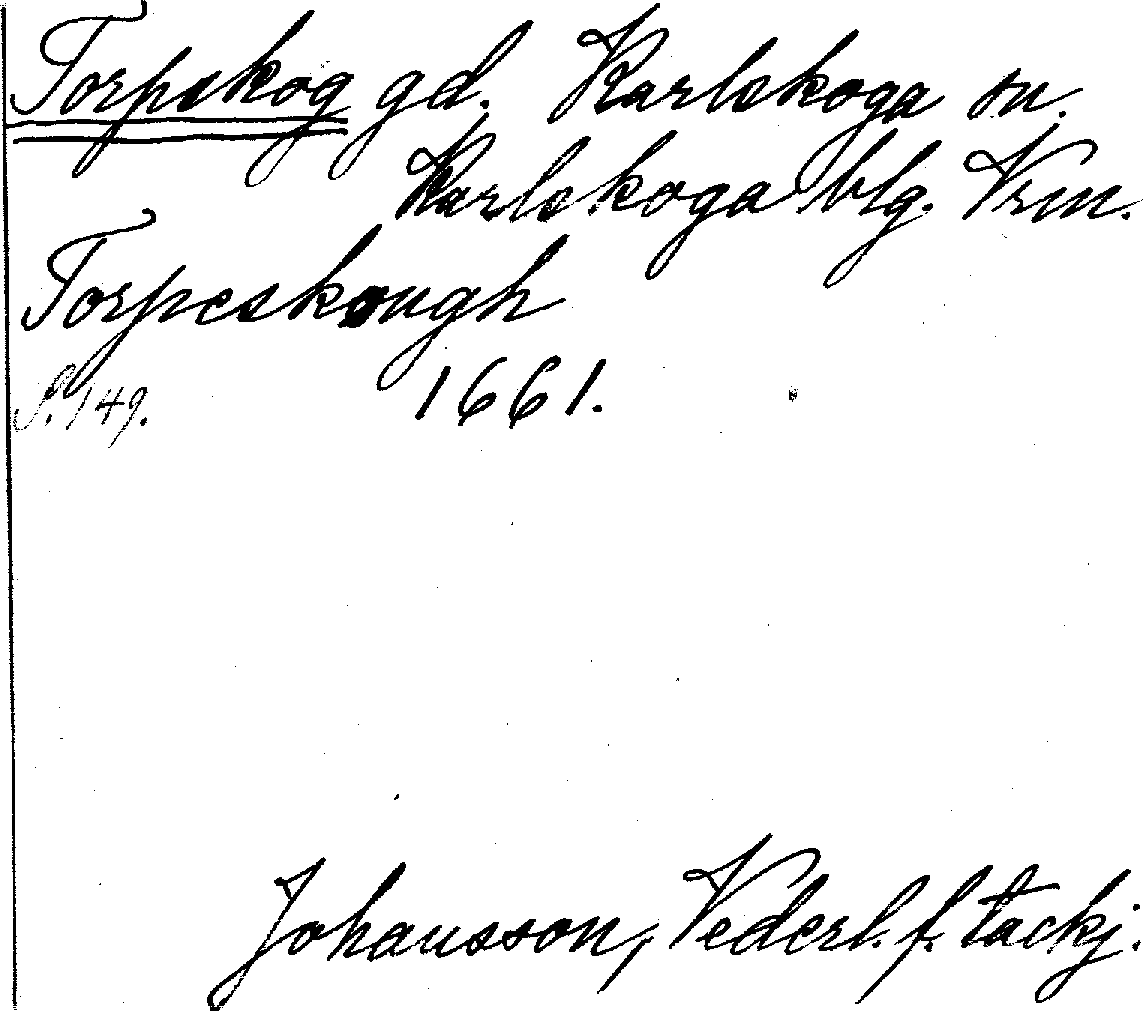 Torpskog gd. Karlskoga sn.
Karlskoga blg. Vrm.
Torpeskough
S. 149. 1661.
Johansson, Vederl. f. tackj.